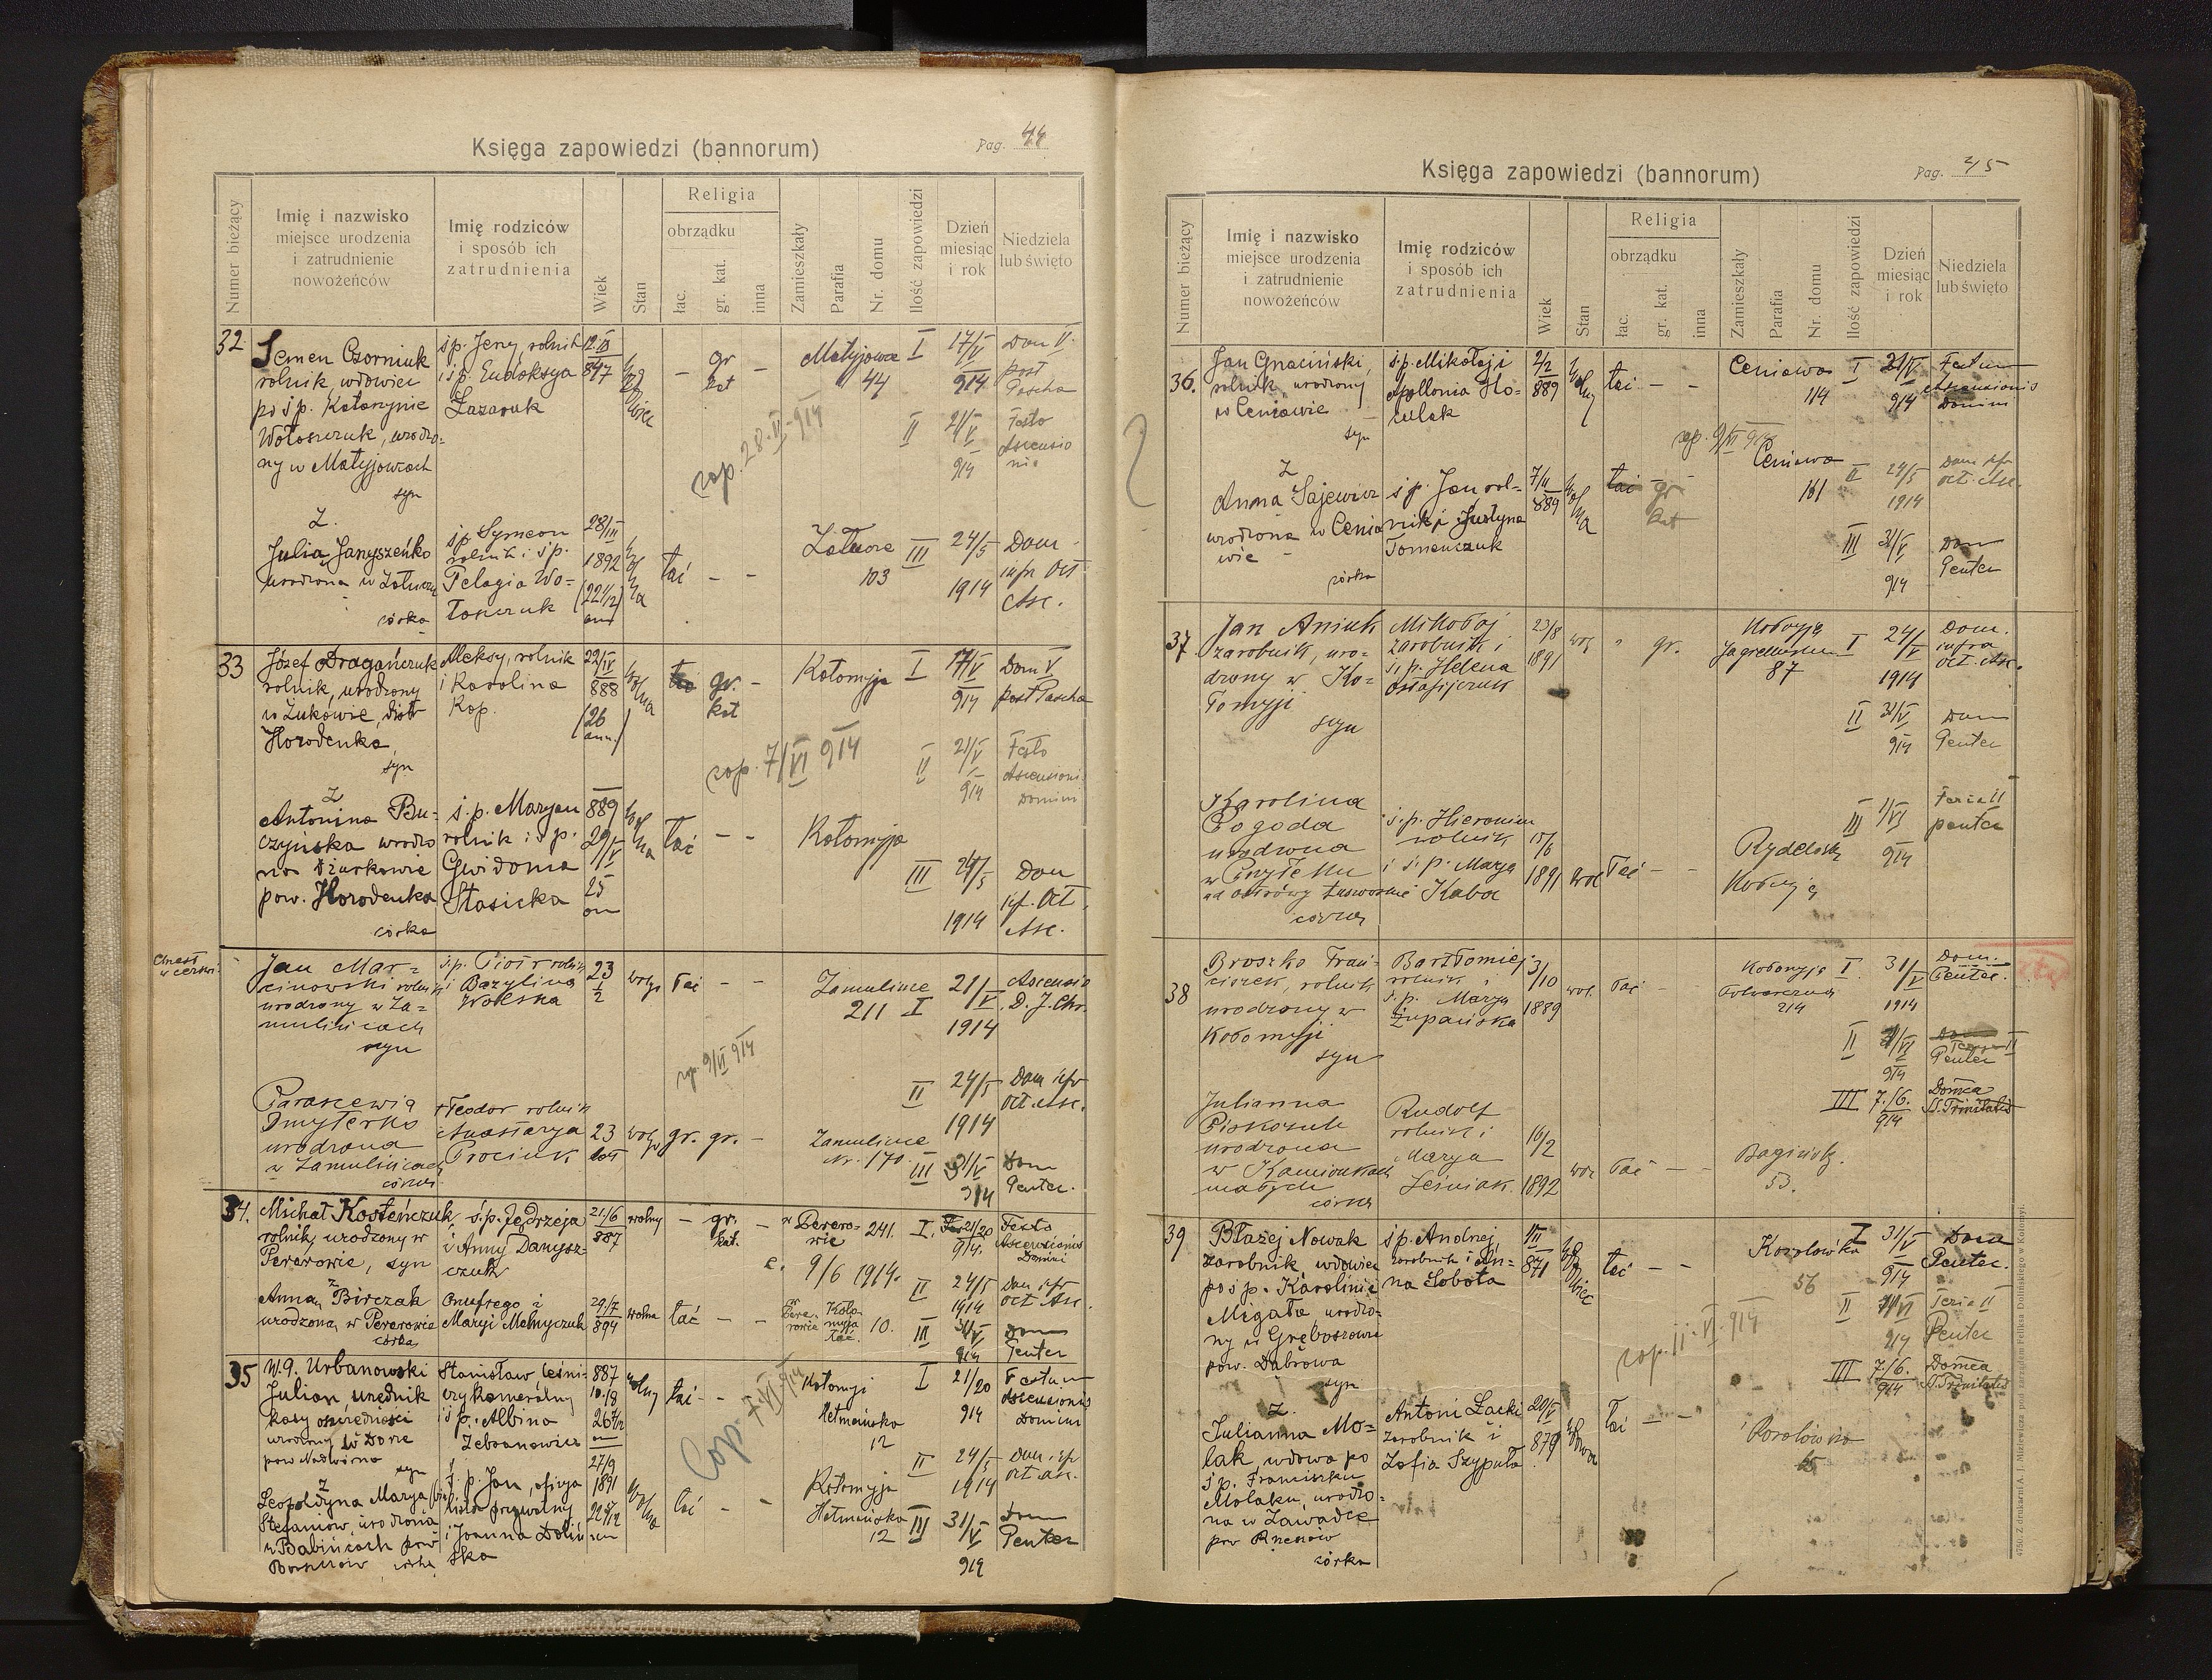 Księga zapowiedzi (bannorum)
Pag. 44
Numer bieżący
Imię i nazwisko
miejsce urodzenia
i zatrudnienie
nowożeńców
Imię rodziców
i sposób ich
zatrudnienia
Wiek
Stan
Religia
obrządku
łac.
gr. kat.
inna
Zamieszkały
Parafia
Nr. domu
Ilość zapowiedzi
Dzień
miesiąc
i rok
Niedziela
lub święto
32.
Semen Czorniuk
rolnik, wdowiec
po śp. Katarzynie
Wołoszczuk, urodzo-
ny w Matyjowcach
syn
śp. Jerzy rolnik
i śp. Eudoksya
Łazaruk
847
wdowiec
– gr kat –
Matyjowce
44
I 17/V 914 Dom V post Pascha
II 21/V 914 Festo Ascensionis
cop. 28.VI.914
Z.
Julia Janyszeńko
urodzona w Załuczu
córka
śp Symeon
rolnik i śp.
Pelagia Wo-
łoszczuk
28/III
1892
(22 1/2)
wolna
łać – –
Załucze
103
III 24/5 1914 Dom. infr Oct. Asc.
33
Józef Dragańczuk
rolnik, urodzony
w Żukowie, distr
Horodenka,
syn
Aleksy, rolnik
i Karolina
Kop.
22/IV
888
(26 ann.)
gr. kat –
Kołomyja
I 17/V 914 Dom V post Pascha
cop. 7/VI 914
II 21/V 914 Festo Ascensionis Domini
Z
Antonina Bu-
czyńska urodzo
na Dżurkowie
pow. Horodenka
córka
ś.p. Maryan
rolnik i śp.
Gwidona
Stasicka
889
29/V
25
wolna
łać – –
Kołomyja
III 24/5 1914 Dom inf. Oct. Asc.
Chrzest
w cerkwi
Jan Mar-
cinowski rolnik
urodzony w Za-
mulińcach
syn
ś.p. Piotr rolnik
i Bazylina
Wolska
23 1/2
wolny
łać – –
Zamulince
211 I
21/V 1914
Ascensio D. J. Chr.
cop. 9/VI 914
II 24/5 1914 Dom infr oct. asc.
Paraszewia
Dmyterko
urodzona
w Zamulińcach
córka
Teodor rolnik
Anastazya
Prociuk
23
gr. gr. –
Zamulince
Nr. 170.
III 31/V 914 Dom Penter.
34.
Michał Kosteńczuk,
rolnik, urodzony w
Pererowie, syn
ś.p. Jędrzeja
i Anny Danysz-
czuk
21/6
887
wolny
– gr. kat. –
w Pererowie 241.
I. 914. Festo Ascensionis Domini
c. 9/6 1914.
z
Anna Birczak
urodzona w Pererowie
córka
Onufrego i
Maryi Melnyczuk
29/7
894
wolna
łać – –
w Pererowie Kołomyja łać. 10.
II 24/5 1914 Dom. infr oct Asc.
III 31/V 914 Dom Penter
35
W.P. Urbanowski
Julian, urzędnik
kasy oszczędności
urodzony w Dorze
pow Nadwórna
syn
Stanisław leśni-
czy kameralny
i śp. Albina
Zebranowicz
887
10/8
26
wolny
łać – –
Kołomyji
Hetmańska
12
I 914 Festum Ascensionis Domini
Cop. 7.VI.914
z
Leopoldyna Marya
Stefaniów, urodzona
w Babińcach pow
Borszczów, córka
ś. p. Jan, oficya
lista prywatny
i Joanna Doliń
ska
27/9
1891
wolna
łać – –
Kołomyja
Hetmańska
12
II 24/5 1914 Dom. infr oct. asc.
III 31/V 914 Dom Penter
Księga zapowiedzi (bannorum)
Pag. 45
Numer bieżący
Imię i nazwisko
miejsce urodzenia
i zatrudnienie
nowożeńców
Imię rodziców
i sposób ich
zatrudnienia
Wiek
Stan
Religia
obrządku
łac.
gr. kat.
inna
Zamieszkały
Parafia
Nr. domu
Ilość zapowiedzi
Dzień
miesiąc
i rok
Niedziela
lub święto
36.
Jan Gnaciński,
rolnik, urodzony
w Ceniawie
syn
śp. Mikołaj i
Apollonia Ho-
culak
2/2
889
wolny
łać – –
Ceniawa
114
I 21/V 914 Festum Ascensionis Domini
cop. 9/VI 914
?
Z
Anna Sajewicz
urodzona w Cenia
wie
córka
śp. Jan rol-
nik i Justyna
Tomenczuk
889
wolna
łać gr kat
Ceniawa
161
II 24/5 1914 Dom infr oct. Asc.
III 31/V 914 Dom Penter
37.
Jan Aniuk
zarobnik, uro-
dzony w Ko-
łomyji
syn
Mikołaj
zarobnik i
ś.p. Helena
Ostafijczuk
23/8
1891
wol
gr.
Kołomyja
87
I 24/V 1914 Dom. infra oct. Asc.
II 31/V 914 Dom Penter
Karolina
Pogoda
urodzona
córka
ś.p. Hieronim
rolnik
i ś.p. Marya
Kaba
15/6
1891
wol
łać – –
Kołomyja
III 1/VI 914 Feria II penter
38
Broszko Fran-
ciszek, rolnik
urodzony w
Kołomyji
syn
Bartłomiej
rolnik i
ś.p. Marya
Żupańska
3/10
1889
wol.
łać – –
Kołomyja
214
I 31/V 1914 Dom. Pentec.
II 1/VI 914 Feria II Penter
III 7./6. 914 Domca SS. Trinitatis
Julianna
Piskozub
urodzona
w Kamionkach
małych
córka
Rudolf
rolnik i
Marya
Leśniak.
16/2
1892
wol
łać – –
Bagińsb.
53.
39
Błażej Nowak
zarobnik wdowiec
po śp. Karolinie
Migała urodzo-
ny w Gręboszowie
pow. Dąbrowa
syn
śp. Andrzej,
zarobnik i An-
na Sobota
871
wdowiec
łać – –
Korolówka
56
I 31/V 914 Dom Pentec.
II 1/VI 914 Feria II Penter
III 7./6. 914 Domca SS. Trinitatis
cop. 11.VI.914
Z.
Julianna Mo-
lak, wdowa po
śp. Franciszku
Molaku, urodzo-
na w Zawadce
pow Rzeszów
córka
Antoni Lacki
zarobnik i
Zofia Szypuła
20/V
879
wdowa
łać – –
Korolówka
4750. Z drukarni A. J. Miziewicza pod zarządem Feliksa Dolińskiego w Kołomyi.